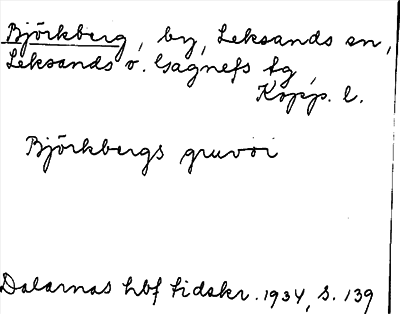 Björkberg, by, Leksands sn,
Leksands o. Gagnefs tg,
Kopp. l.
Björkbergs gruvöi
Dalarnas hbf tidskr. 1934, s. 139